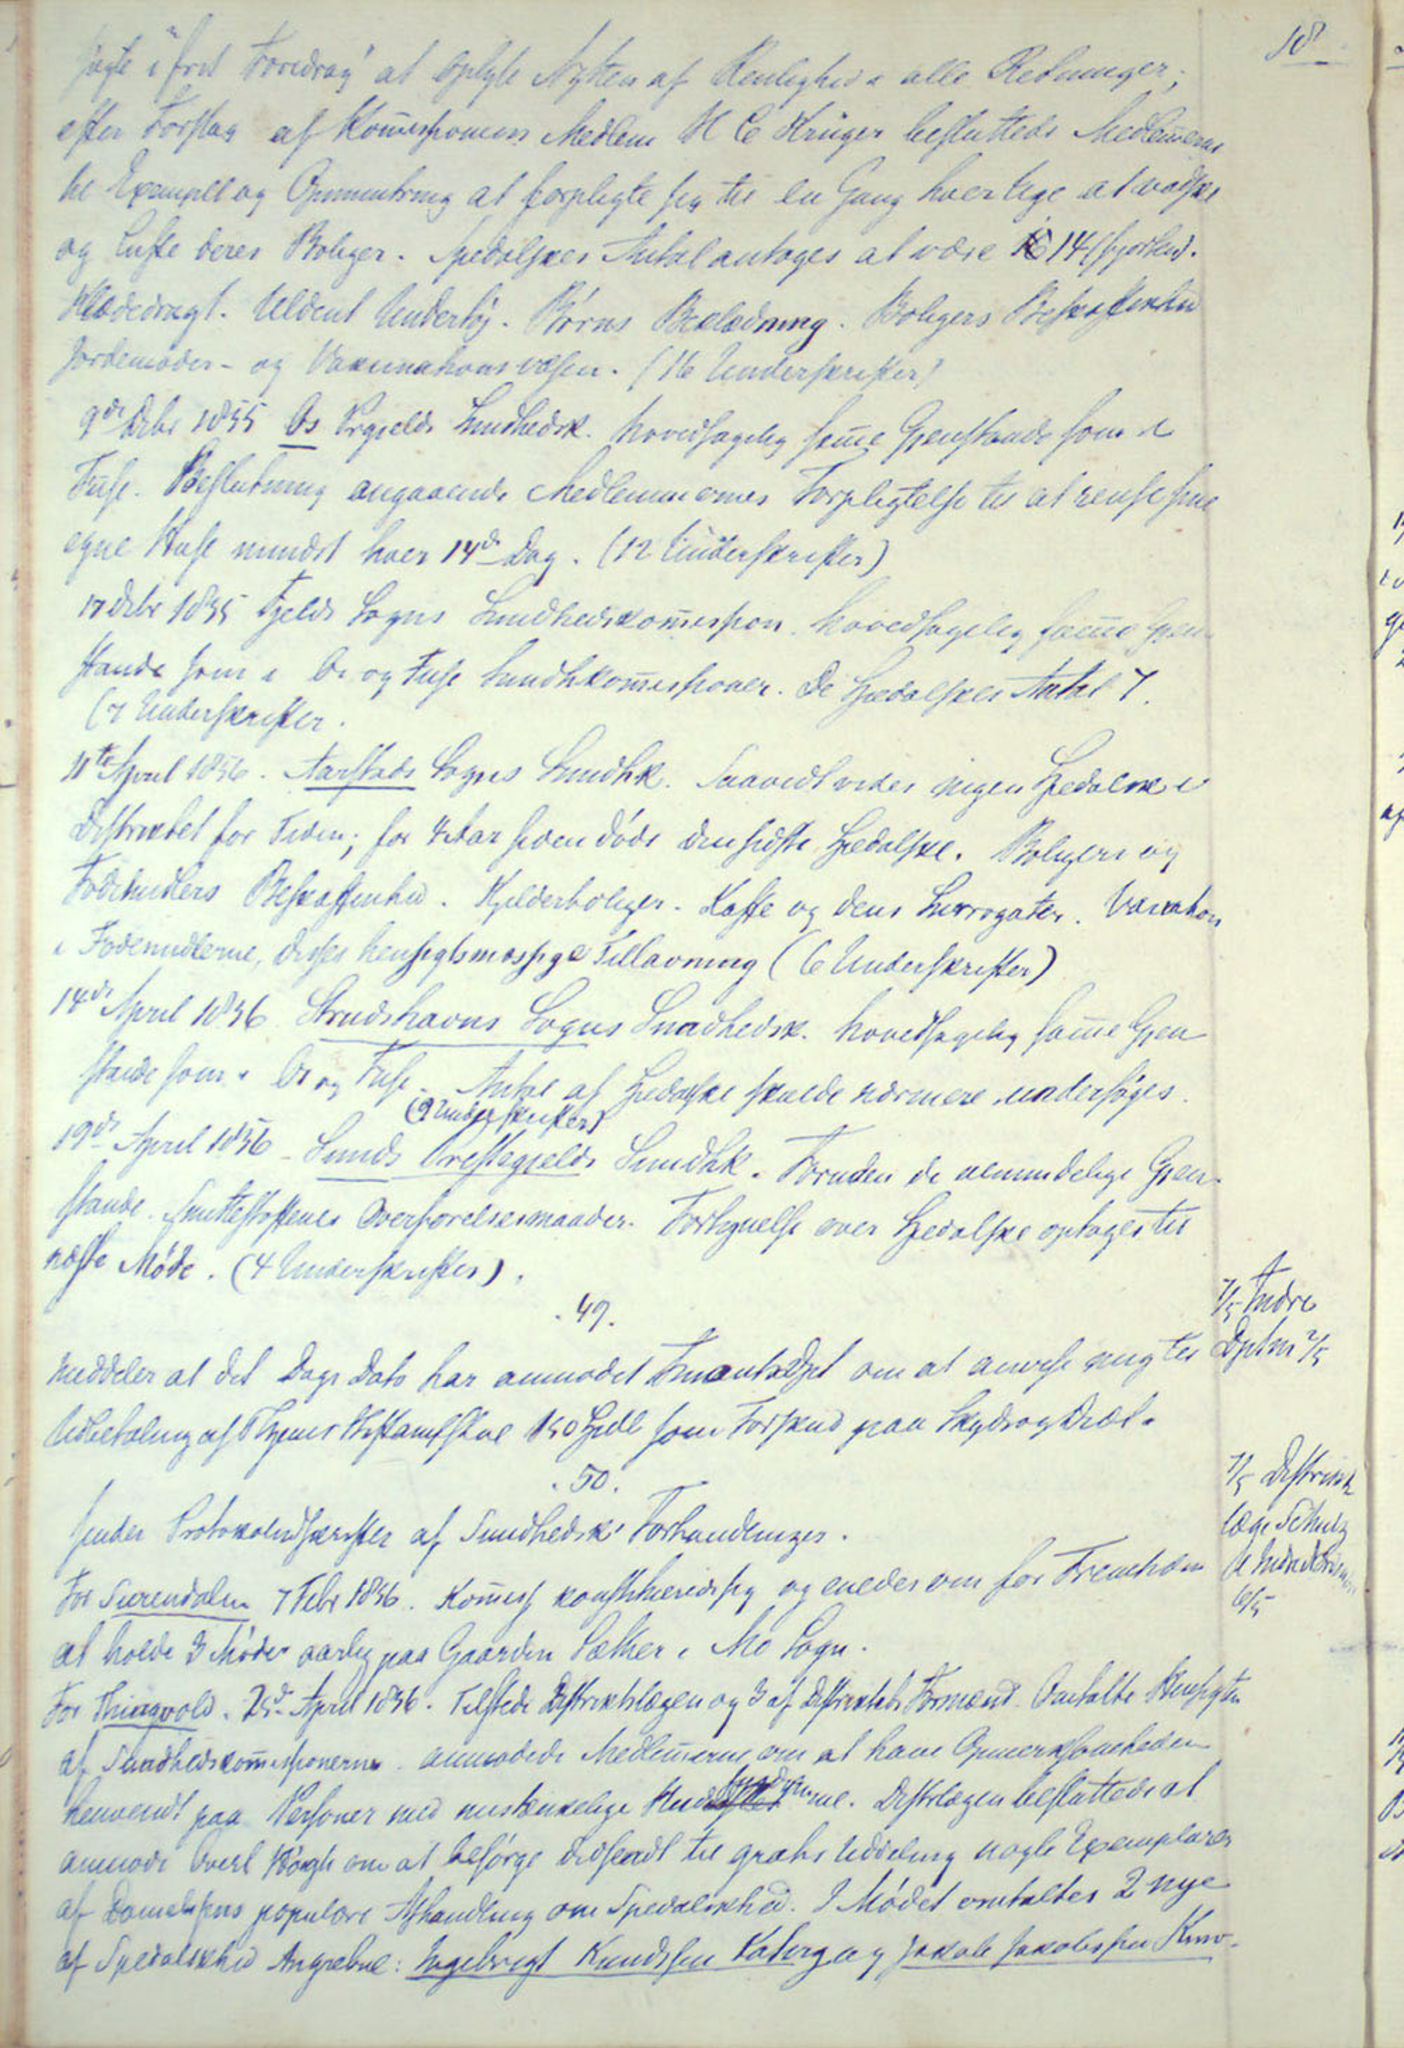 18
søgte i "frit Foredrag" at oplyse Nytten af Renlighed i alle Retninger;
efter Forslag af Kom̄issionens Medlem H C Krüger besluttede Medlem̄erne
til Exempel og Opmuntring at forpligte sig til en Gang hver Uge at vadske
og lufte deres Boliger. Spedalskes Antal antages at være 14
Klædedragt. Uldent Undertøj. Børns Beklædning. Boligers Beskaffenhed
Jordemoder- og Vaxinationsvæsen. (16 Underskrifter)
9de Debr 1855 Os Prgjelds Sundhedsk. hovedsagelig sam̄e Gjenstande som i
Fuse. Beslutning angaaende Medlemmernes Forpligtelse til at rense sine
egne Huse mindst hver 14de Dag. (12 Underskrifter)
17 Debr 1855 Fjelds Sogns Sundhedskom̄ission. hovedsagelig sam̄e Gjen-
stande som i Os og Fuse Sundhkom̄issioner. De Spedalskes Antal 7.
(7 Underskrifter.
11te April 1856. Aarstads Sogns Sundhk. Saavidt vides ingen Spedalsk i
Distriktet for Tiden; for 4 Aar siden døde den sidste Spedalske. Boligers og
Fødemidlers Beskaffenhed. Kjelderboliger. Kaffe og dens Surrogater. Variation
i Fødemidlerne, disses hensigtsmæssige Tillavning (6 Underskrifter)
14de April 1856 Strudshavns Sogns Sundhedsk. hovedsagelig sam̄e Gjen
stande som i Os og Fuse. Antal af Spedalske skulde nærmere undersøges.
(9 Underskrifter)
19de April 1856 - Sunds Præstegjelds Sundhk. Foruden de almindelige Gjen-
stande. Smittestoffenes Overførelsesmaader. Fortegnelse over Spedalske optages til
næste Møde. (4 Underskrifter).
. 49.
7/5 Indre
Dptm 2/5
meddeler at det Dags Dato har anmodet Finantsdpt om at anvise mig til
Udbetaling af Stiftamtstue 150 Spdl som Forskud paa Skyds og Diæt.
. 50.
7/5 Distrikts
læge Schulz
6/5
sender Protokoludskrifter af Sundhedsk. Forhandlinger.
For Surendalen 7 Febr 1856. Kom̄iss konstituerede sig og enedes om for Fremtiden
at holde 3 Møder aarlig paa Gaarden Sæther i Mo Sogn.
For Thingvold. 25de April 1856. Tilstede Distriktslægen og 3 af Distriktets Formænd. Omtalte Hensigten
af Sundhedskom̄issionerne. anmodede Medlem̄erne om at have Opmærksomheden
henvendt paa Personer med mistænkelige Hudsygdomme. Distrlægen besluttede at
anmode Overl Høegh om at besørge didsendt til gratis Uddeling nogle Exemplarer
af Danielsens populære Afhandling om Spedalskhed. I Mødet omtaltes 2 nye
af Spedalskhed Angrebne: Ingebrigt Knudsen og Jakob Jakobsen